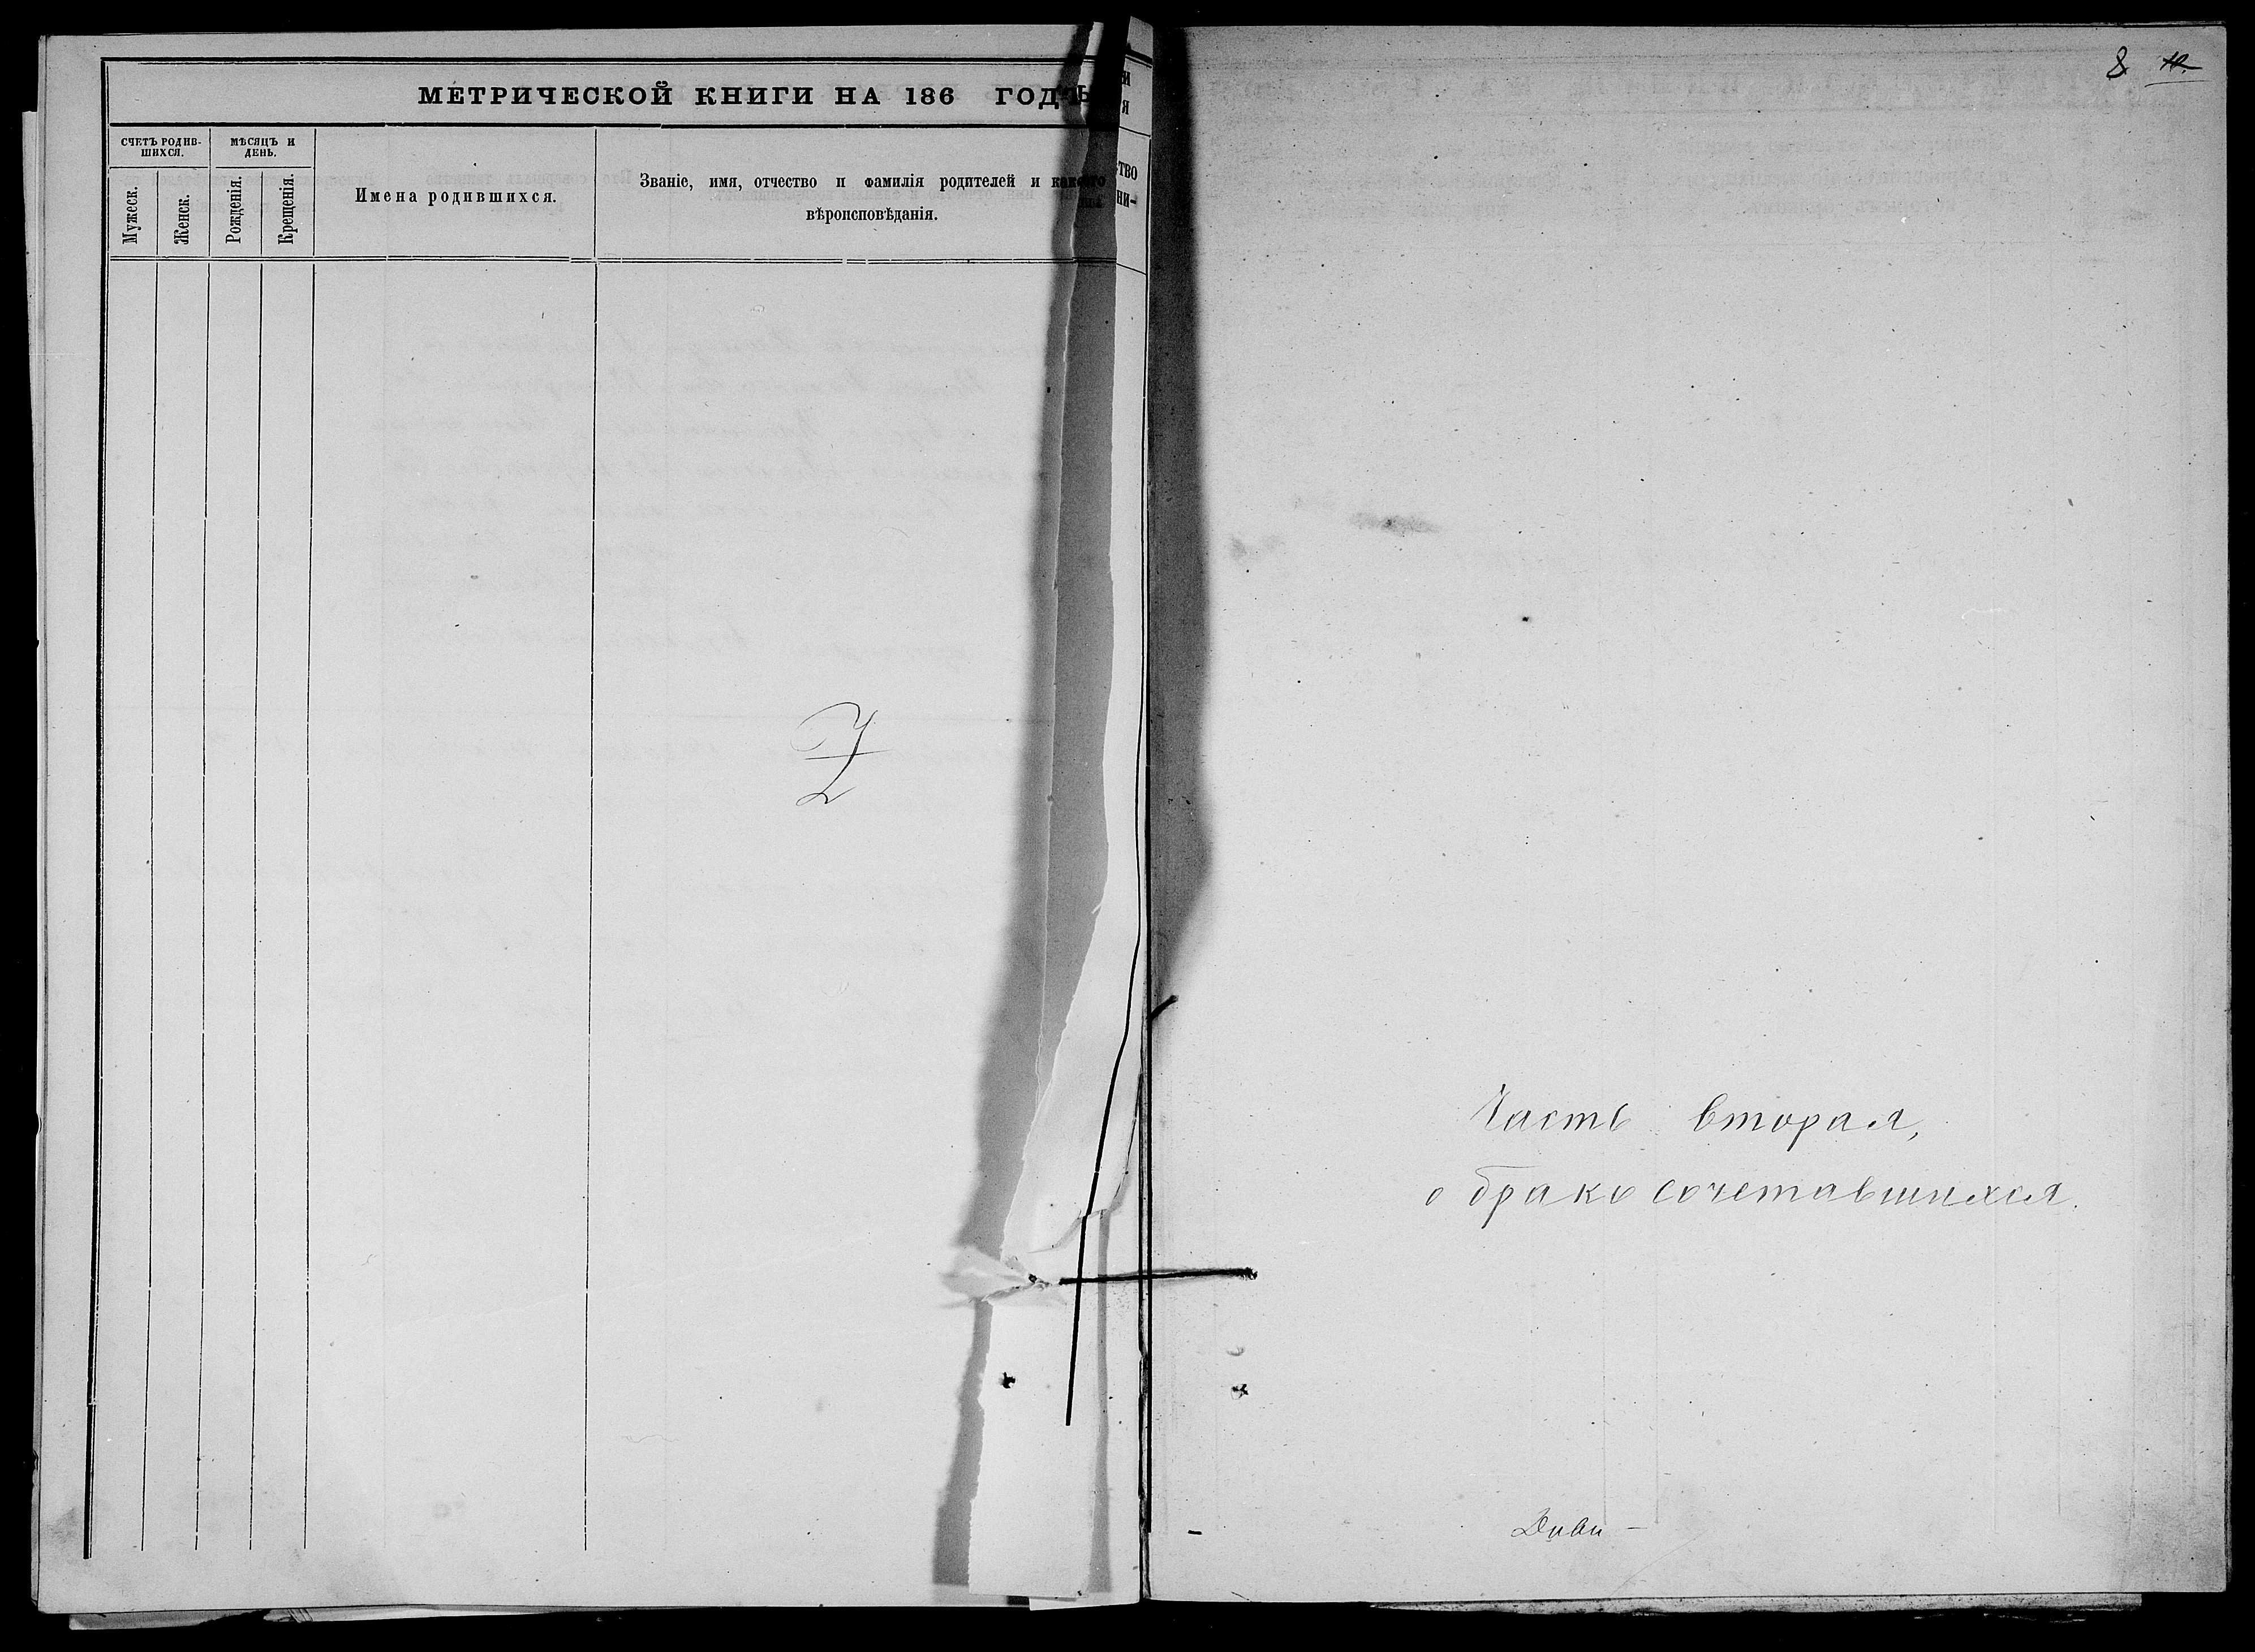 МЕТРИЧЕСКОЙ КНИГИ НА 186 ГОДЪ
СЧЕТЪ РОДИВ-
ШИХСЯ.
МѢСЯЦЪ И
ДЕНЬ.
Мужеск.
Женск.
Рожденія.
Крещенія.
Имена родившихся.
Званіе, имя, отчество и фамилія родителей и какого
вѣроисповѣданія.
8
Часть вторая,
о бракосочетавшихся.